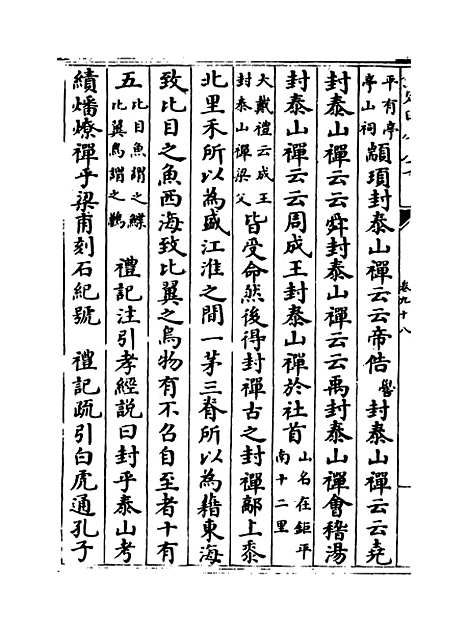 平有亭亭山祠顓頊封泰山禪云云帝俈嚳封泰山禪云云堯
封泰山禪云云舜封泰山禪云云禹封泰山禪會稽湯
封泰山禪云云周成王封泰山禪於社首山名在鉅平南十二里
大戴禮云成王封泰山禪梁父皆受命然後得封禪古之封禪鄗上黍
北里禾所以為盛江淮之間一茅三脊所以為藉東海
致比目之魚西海致比翼之鳥物有不召自至者十有
五比目魚謂之鰈比翼鳥謂之鶼禮記注引孝經説曰封乎泰山考
績燔燎禪乎梁甫刻石紀號禮記疏引白虎通孔子
卷九十八